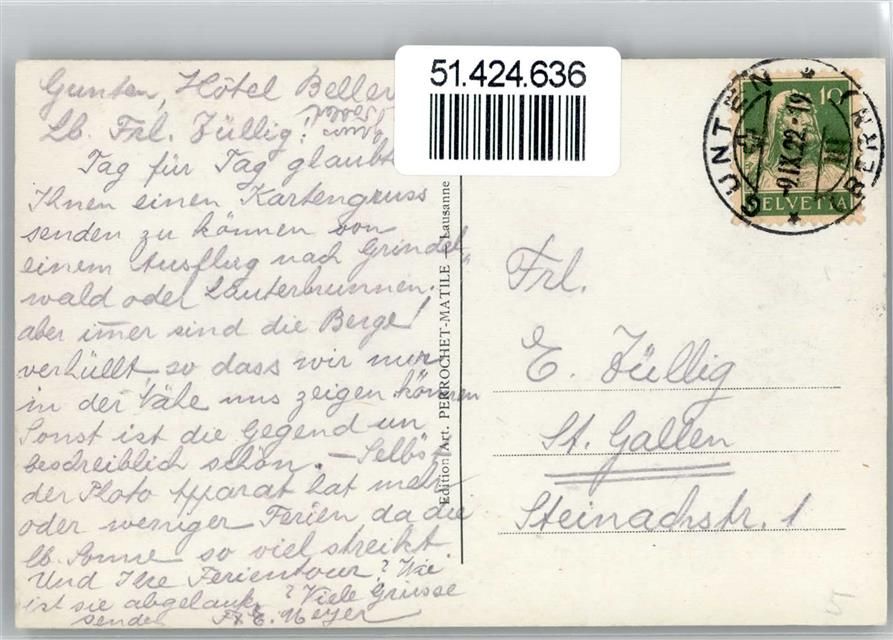 51.424.636
Gunten, Hôtel Bellev
Lb. Frl. Züllig!
Tag für Tag glaubt
Ihnen einen Kartengruss
senden zu können von
einem Ausflug nach Grindel„
wald oder Lauterbrunnen.
aber immer sind die Berge!
verhüllt, so dass wir nur
in der Nähe uns zeigen können
Sonst ist die Gegend un
beschreiblich schön. – Selbst
der Photo Apparat hat mehr
oder weniger Ferien da die
lb. Sonne so viel streikt.
Und Ihre Ferientour? Wie
ist sie abgelaufen? Viele Grüsse
senden Fr. E. Meyer
Edition Art. PERROCHET-MATILE — Lausanne
GUNTEN (BERN)
-9.IX.22.-19
10
HELVETIA
Frl.
E. Züllig
St. Gallen
Steinachstr. 1